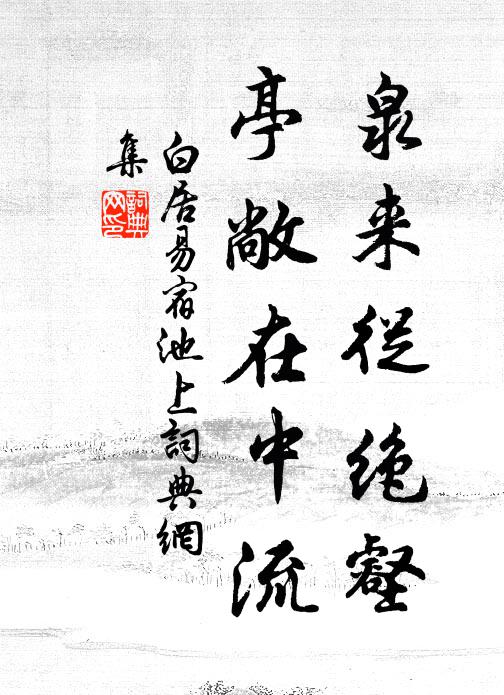 泉来從绝壑
亭敞在中流
白居易宿池上詞典網
集
詞典
网印